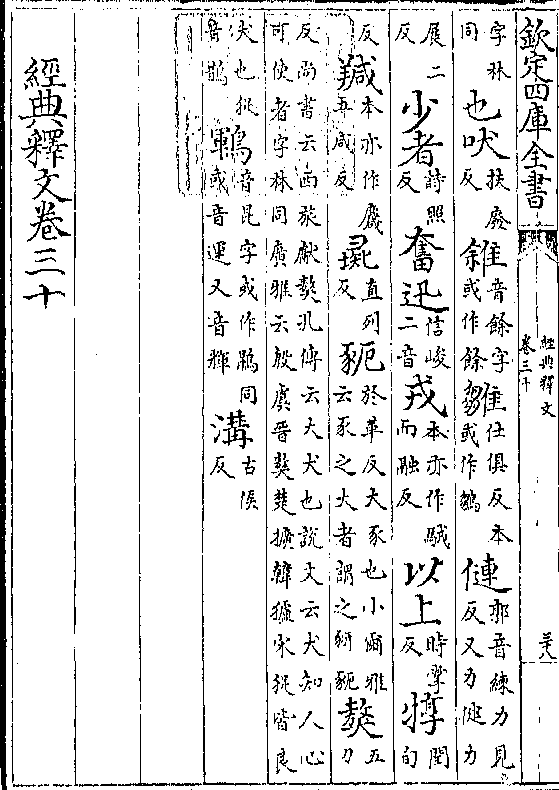 欽定四庫全書
經典釋文
卷三十
三十八
字林同也吠扶廢反雓音餘字或作餘雛仕俱反本或作鶵僆郭音練力見反又力健力
展二反少者詩照反奮迅信峻二音戎本亦作駥而融反以上時掌反犉閏旬
反羬本亦作麙五咸反彘直列反豟於革反大豕也小爾雅云豕之大者謂之豣豟獒五刀
反尚書云西旅獻獒孔傳云大犬也說文云犬知人心可使者字林同廣雅云殷虞晉獒楚獷韓獹宋捉皆良
犬也捉音鵲鶤音昆字或作鵾同或音運又音輝溝古侯反
經典釋文卷三十